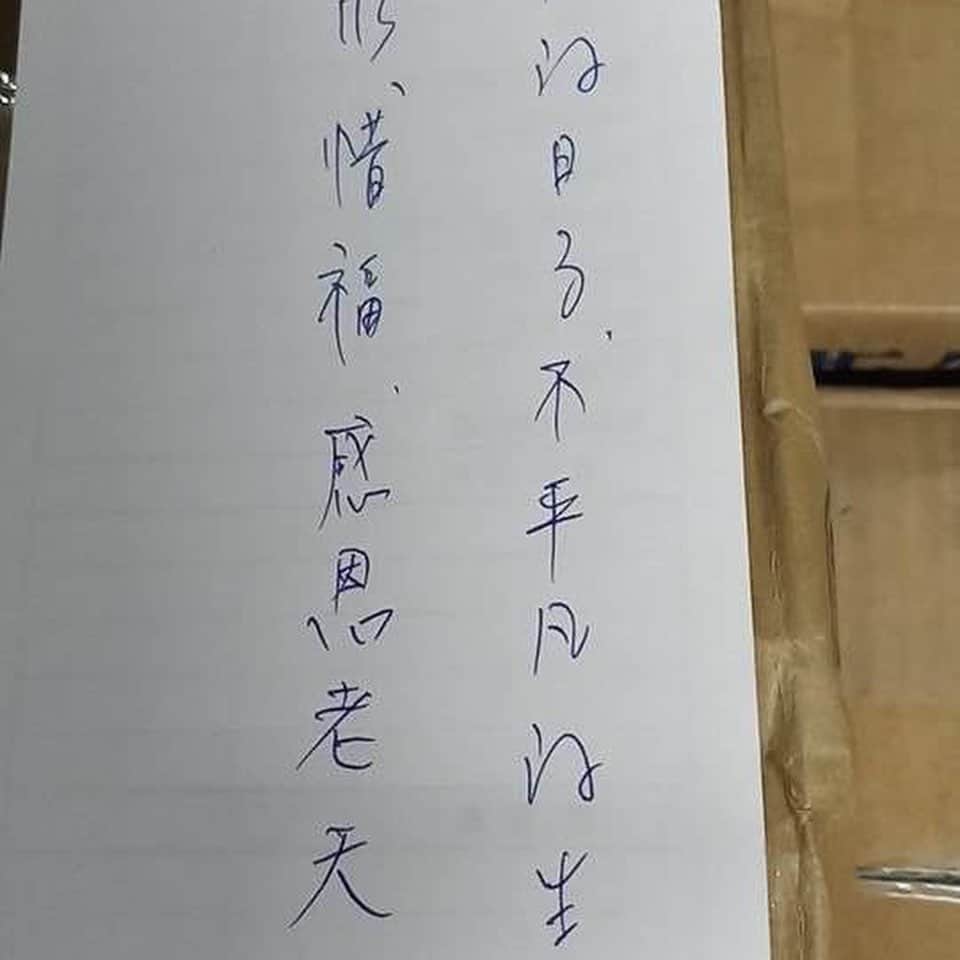 的日子、不平凡的生
惜福、感恩老天